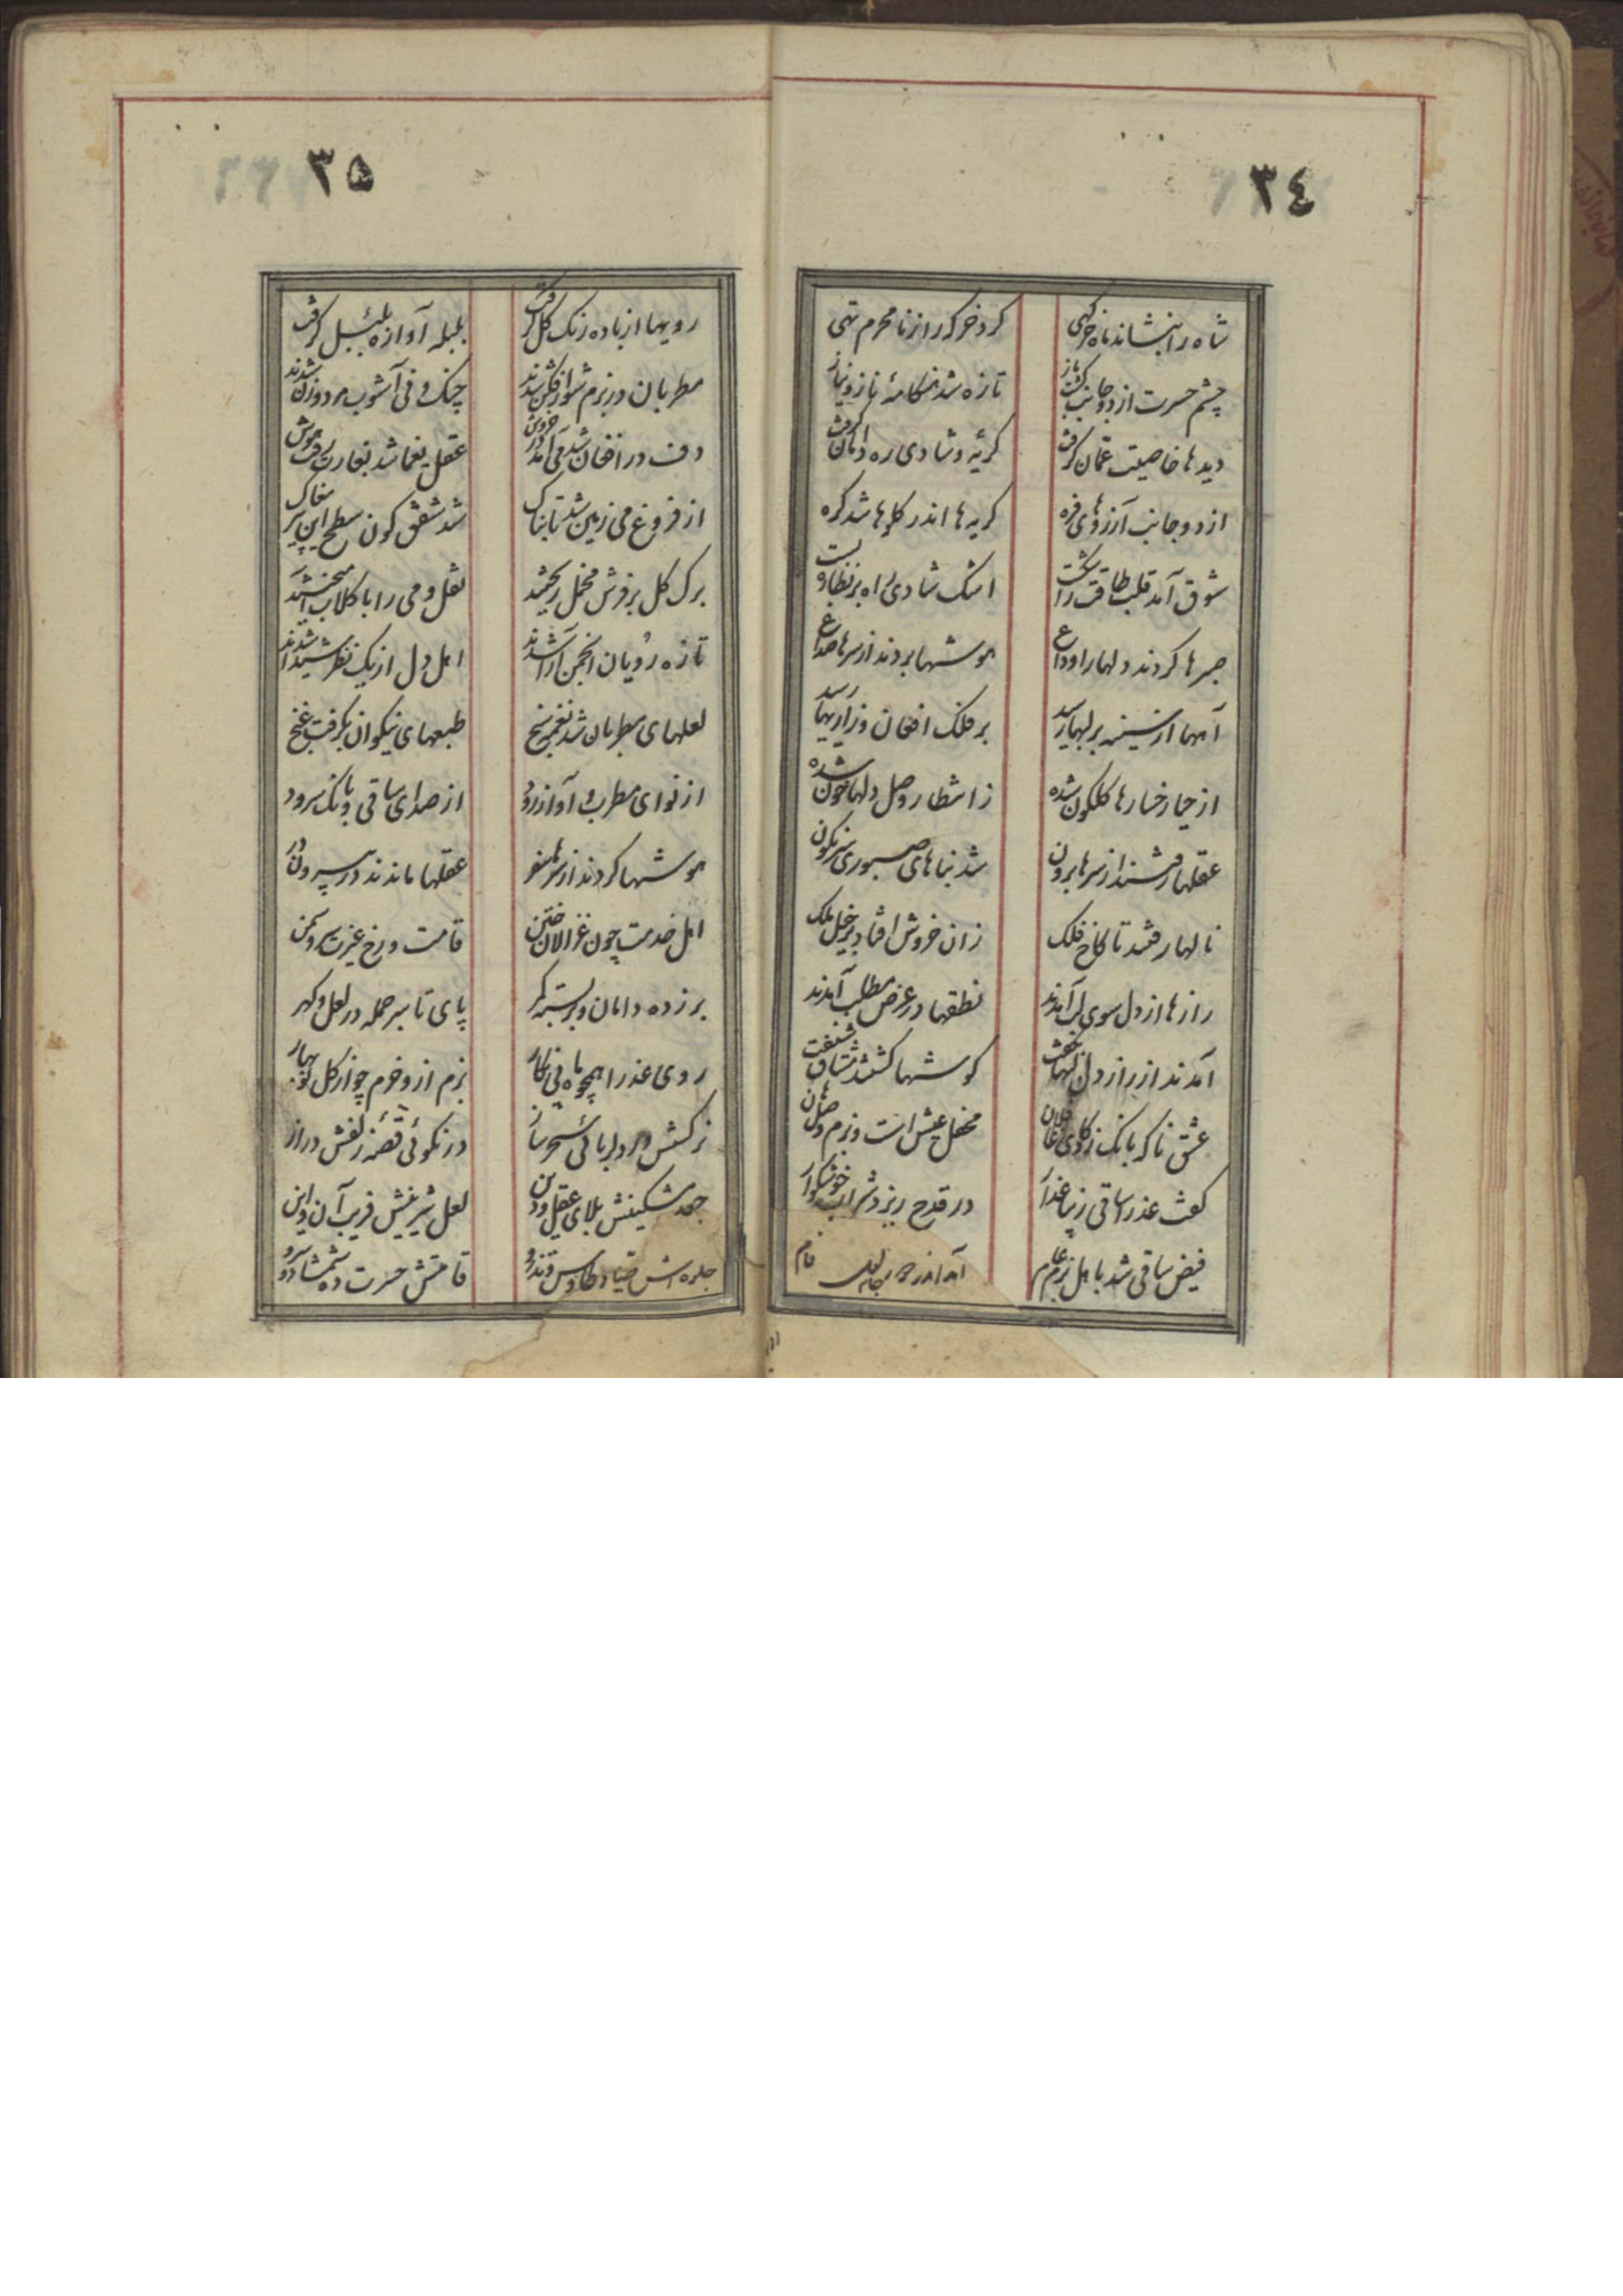 ٣٤
شاه را بنشاند ماه خرگهی
کرد خرگه را ز نامحرم تهی
چشم حسرت از دو جانب گشت باز
تازه شد هنگامهٔ ناز و نیاز
دیدها خاصیت عمّان گرفت
گریه و شادی ره دامان گرفت
از دو جانب آرزوهای فره
گریه‌ها اندر گلوها شد گره
شوق آمد قلب طاقت را شکست
اشک شادی راه بر نظاره بست
صبرها کردند دلها را وداع
هوشها بردند از سرها صداع
آهها از سینه بر لبها رسید
بر فلک افغان و زاریها رسید
از حیا رخسارها گلگون شده
ز انتظار وصل دلها خون شده
عقلها رفتند از سرها برون
شد بناهای صبوری سرنگون
نالها رفتند تا کاخ فلک
زان خروش افتاد بر خیل ملک
رازها از دل سوی لب آمدند
نطقها در عرض مطلب آمدند
آمدند از راز دل
گوشها گشتند مشتاق شنفت
عشق ناگه بانک زد کای
محفل عیش است و بزم وصل هان
گفت عذرا ساقی زیبا عذار
در قدح ریزد شراب خوشگوار
فیض ساقی شد باهل بزم عام
آمد اندر دور جام لعل فام
٣٥
رویها از باده رنک گل گرفت
بلبله آوازه بلبل گرفت
مطربان در بزم شورافکن شدند
چنک و نی آشوب مرد و زن شدند
دف در افغان شد نی آمد در خروش
عقل یغما شد بغارت رفت هوش
از فروغ می زمین شد تابناک
شد شفق گون سطح این تیره مغاک
برک گل بر فرش مخمل ریختند
نقل و می را با گلاب آمیختند
تازه رویان انجمن آرا شدند
اهل دل از یک نظر شیدا شدند
لعلهای مطربان شد نغمه سنج
طبعهای نیکوان بگرفت غنج
از نوای مطرب و آواز رود
از صدای ساقی و بانک سرود
هوشها کردند از سرها سفر
عقلها ماندند در بیرون در
اهل خدمت چون غزالان ختن
قامت و رخ غیرت سرو و سمن
برزده دامان و بر بسته کمر
پای تا سر جمله در لعل و گهر
روی عذرا همچو ماه بی غبار
بزم ازو خرم چو از گل نوبهار
نرگسش در دلربائی سحر ساز
در نکوئی قصّهٔ زلفش دراز
جعد مشکینش بلای عقل و دین
لعل شیرینش فریب آن و این
جلوه اش صیاد طاوس و تذرو
قامتش حسرت ده شمشاد و سرو